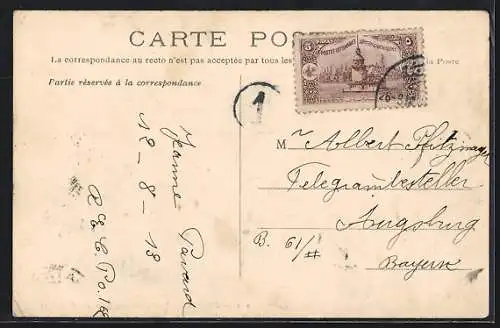 CARTE PO
La correspondance au recto n'est pas acceptée par tous les la Poste
Partie réservée à la correspondance
5
POSTES OTTOMANES
1
Jeanne Pavard
12-8-13
R.E.C. Po.
M r Albert Pfitzmayer
Telegrambesteller
Augsburg
B. 61/II
Bayern